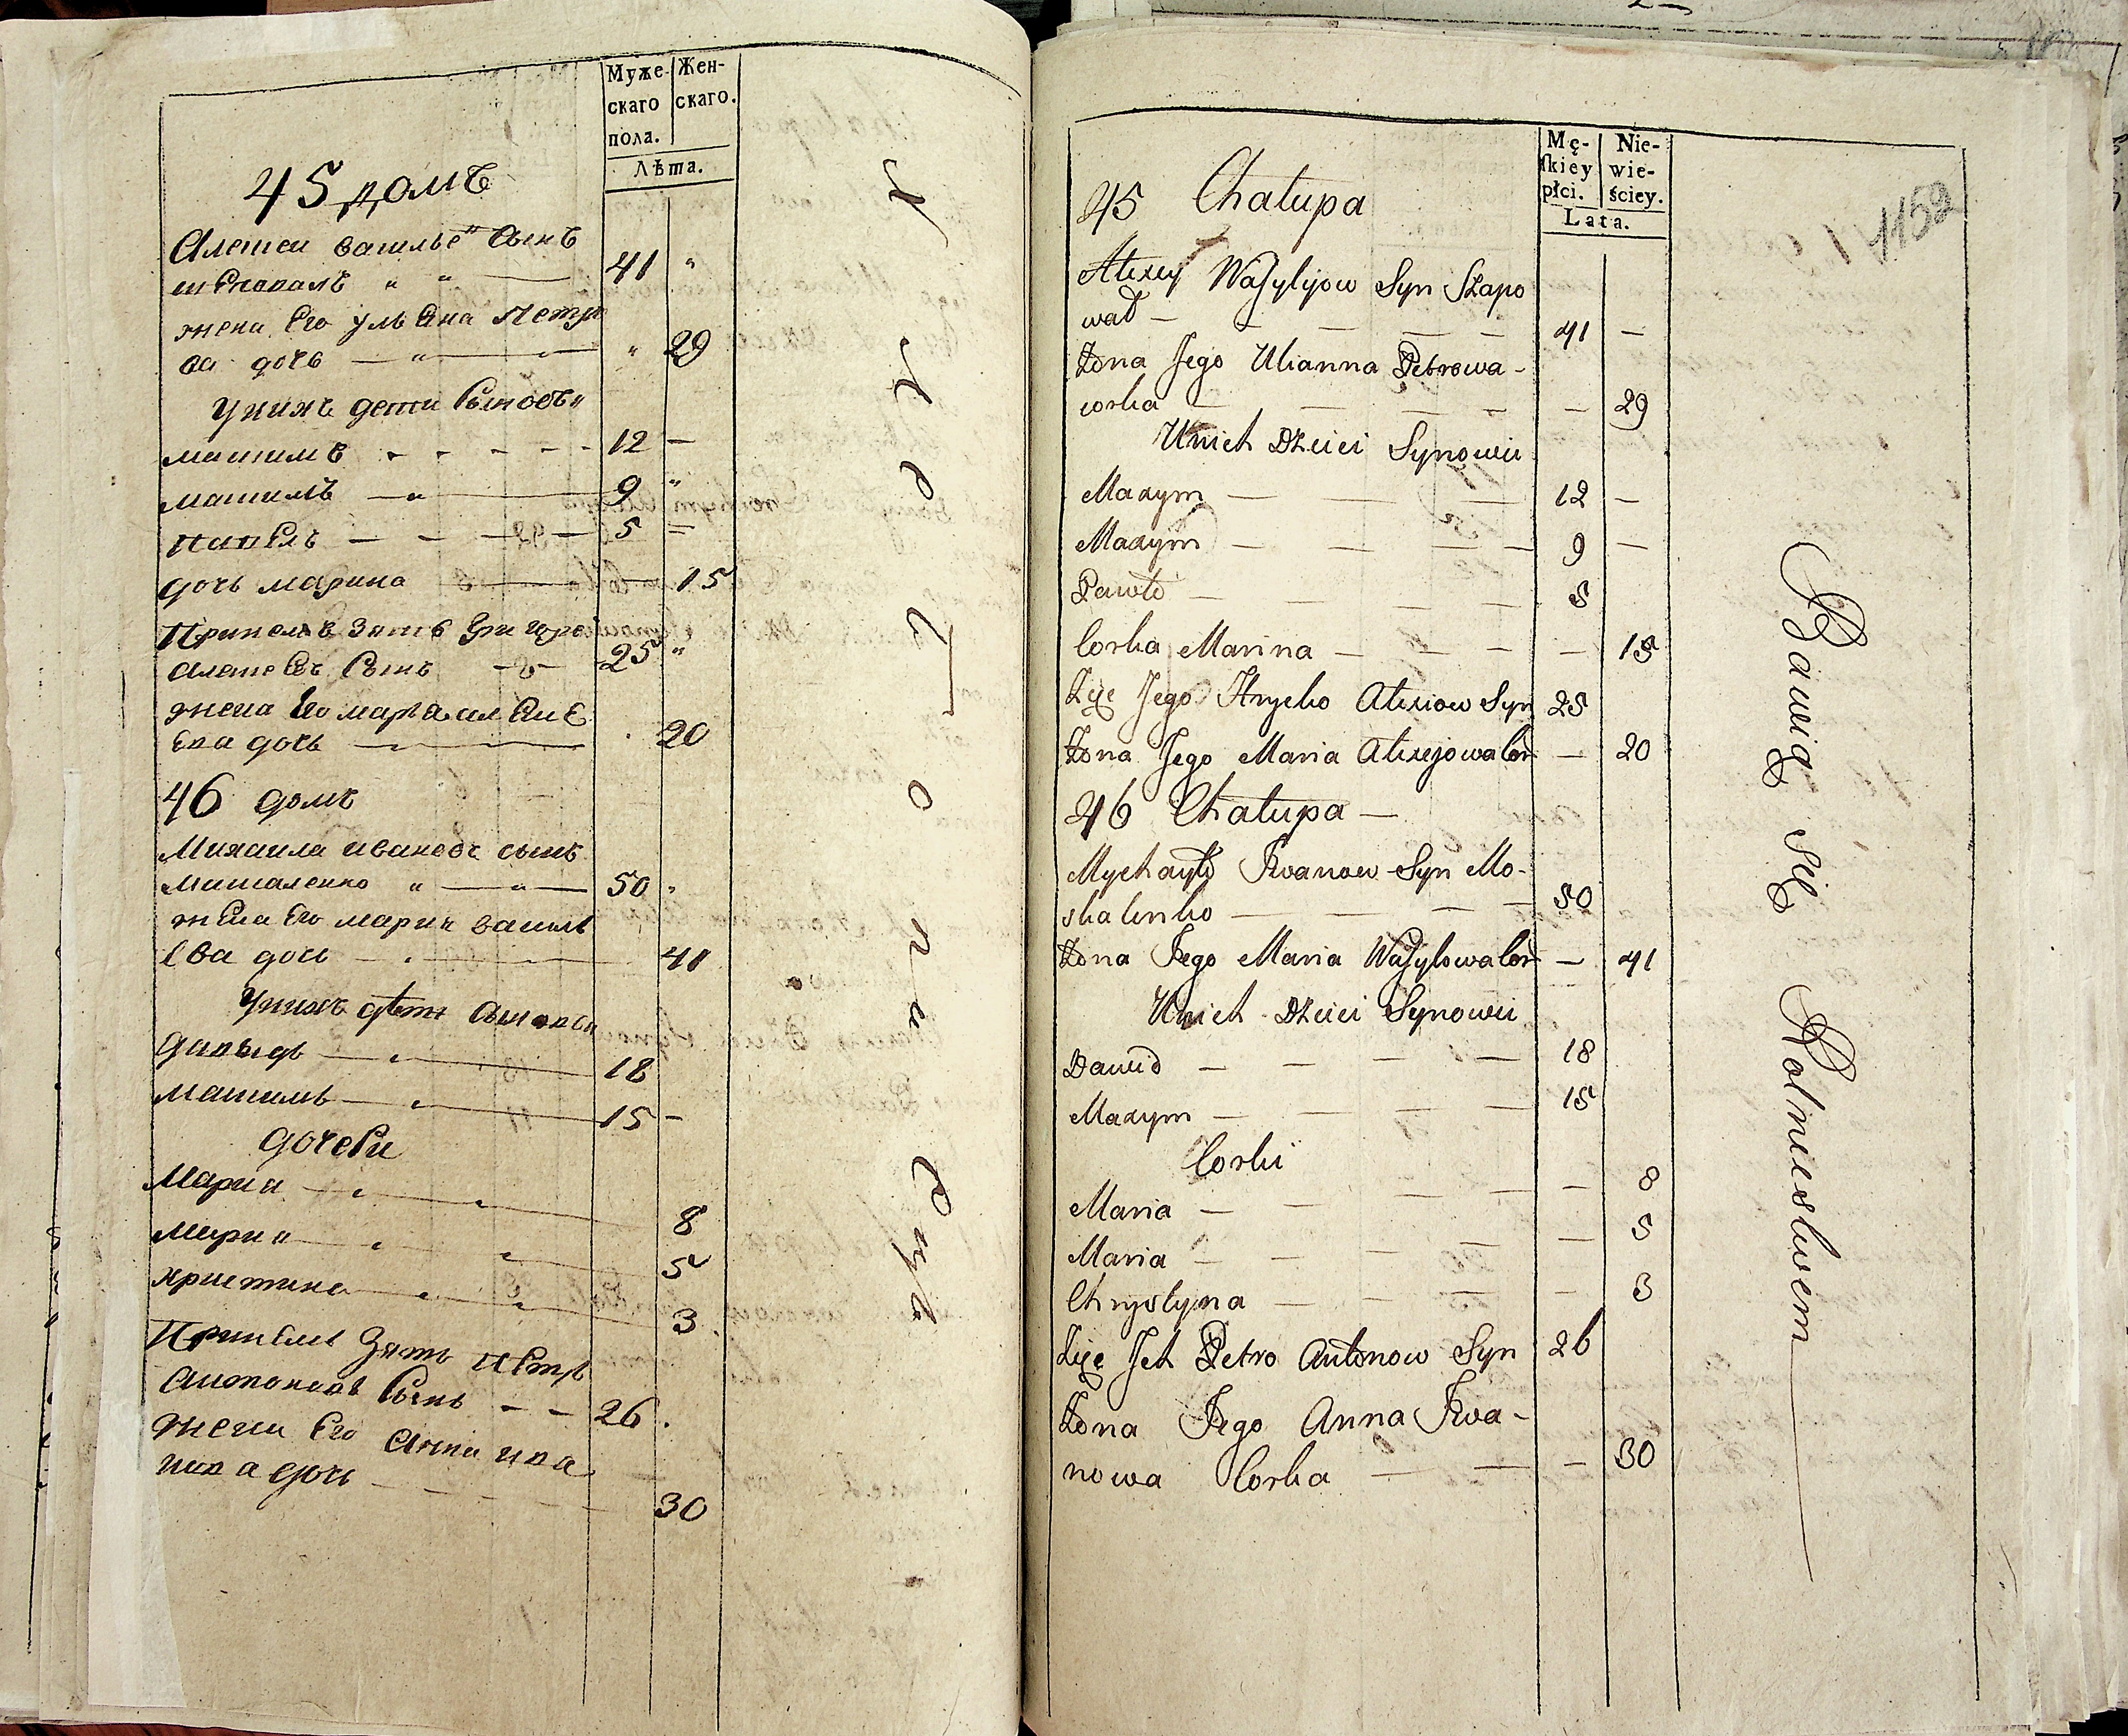 Муже-
скаго
пола.
Жен-
скаго.
Лѣта.
45 домъ
Алексеи василье" сынъ
шкаповалъ " " — 41 "
жена Его ульяна Петро
ва дочь — " — " 29
Унихъ дети Сыновья
максимъ - - - - - 12 —
максимъ — " — 9 "
павелъ — — — — 5 =
дочь марина — — 15
Принелъ зять григорей
алексеевъ Сынъ 25 "
жена Его марья алексѣ
ева дочь — 20
46 домъ
Михаила ивановъ сынъ
Машаленко " — " — 50 "
жена Его мария василь
ева дочь — 41
Унихъ дѣти Сыновья
давыдъ — 18
максимъ — 15 —
дочери
Мария — 8
мария — 5
християна — 3
Принелъ Зять петръ
антоновъ Сынъ — — 26 .
жена Его Анна ива
нова дочь — 30
Хлебопаше
Mę-
ſkiey
płci.
Nie-
wie-
ściey.
Lata.
1152
45 Chałupa
Alexey Wasylijow Syn Szapo
wał — — — — — 41 —
Żona Jego Ulianna Petrowa -
corka — — — — — 29
Unich Dzieci Synowii
Maxym — — 12 —
Maxym — — — — 9 —
Pawło — — — — 5
Corka Marina — — — — 15
Zięć Jego Hryćko Alexiow Syn 25
Żona Jego Maria Alexejowa Cor — 20
46 Chałupa —
Mychayło Iwanow Syn Mo-
skalenko — — — 50
Żona Jego Maria Wasylowa Cor — 41
Unich Dzieci Synowii
Dawid — — — — 18
Maxym — — — — 15
Corki
Maria — — — — — 8
Maria — — — — — 5
Chrystyna — — — — 3
Zięć Ich Petro Antonow Syn 26
Żona Jego Anna Iwa-
nowa Corka — — — 30
Bawią się Rolnictwem